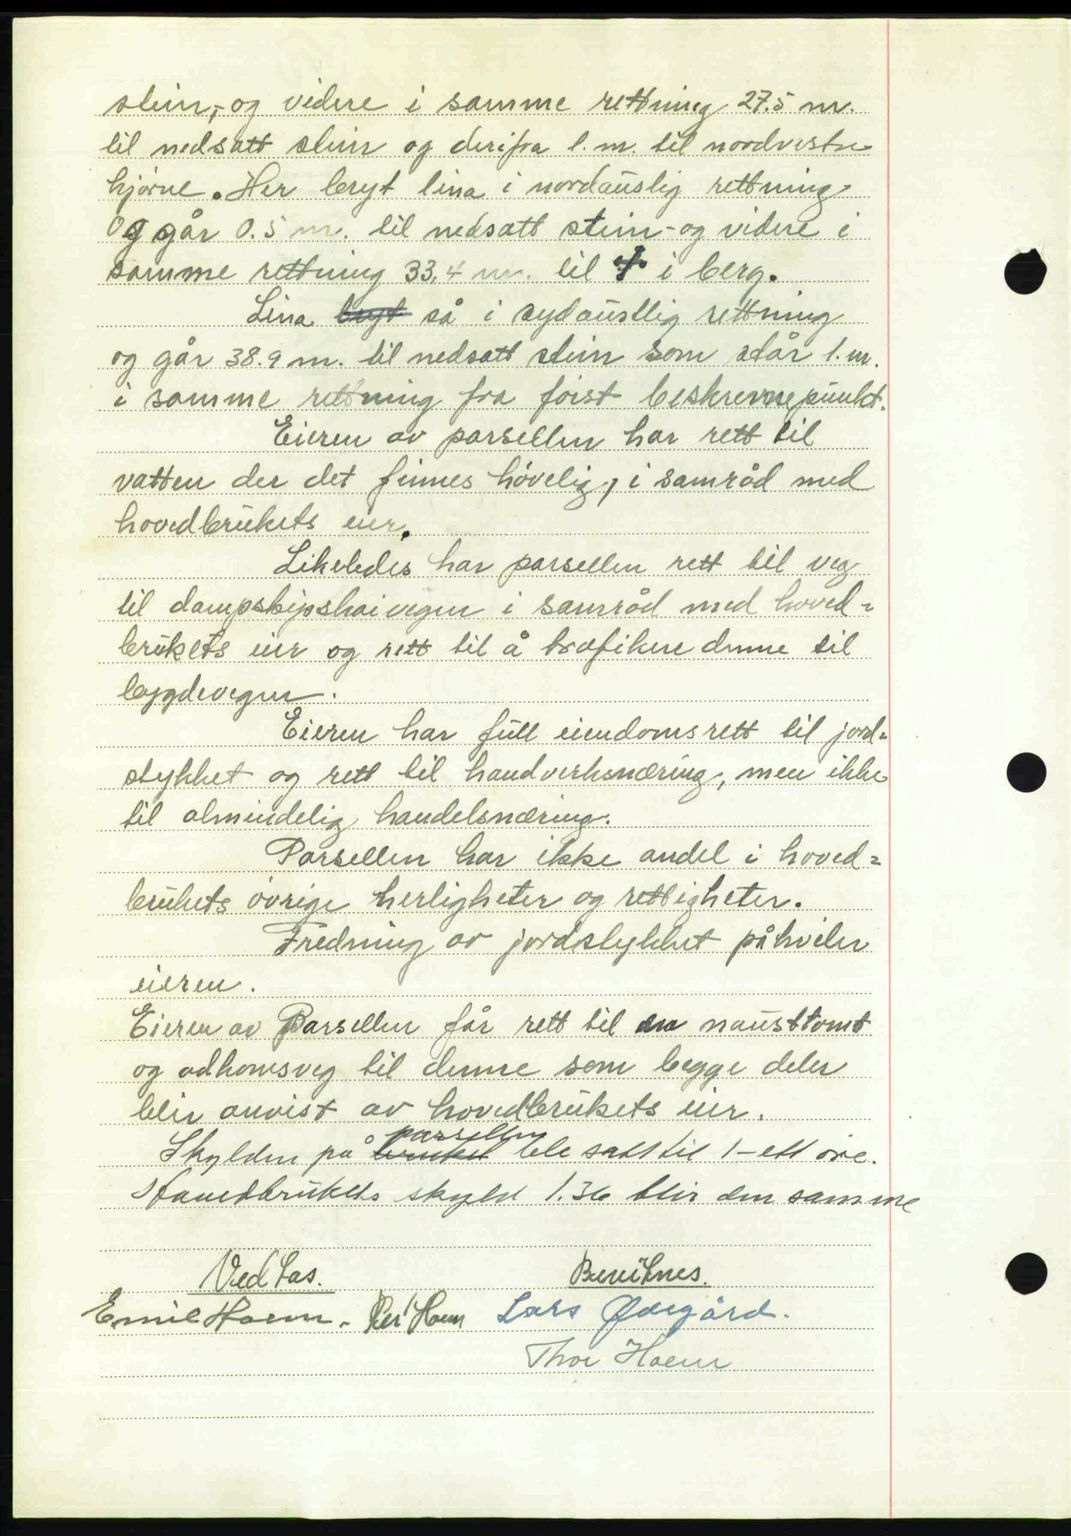 stein,- og videre i samme rettning 27.5 m.
til nedsatt stein og derifra 1. m. til nordvestre
hjørne. Her bryt lina i nordaustlig rettning
og går 0.5 m. til nedsatt stein - og videre i
samme rettning 33,4 m. til + i berg.
Lina bryt så i sydaustlig rettning
og går 38.9 m. til nedsatt stein som står 1. m.
i samme rettning fra først beskrevne punkt.
Eieren av parsellen har rett til
vatten der det finnes høvelig, i samråd med
hovedbrukets eier.
Likeledes har parsellen rett til veg
til dampskipskaivegen i samråd med hoved-
brukets eier og rett til å trafikere denne til
bygdevegen.
Eieren har full eiendomsrett til jord-
stykket og rett til handverksnæring, men ikke
til almindelig handelsnæring.
Parsellen har ikke andel i hoved-
brukets øvrige herligheter og rettigheter.
Fredning av jordstykket påhviler
eieren.
Eieren av Parsellen får rett til en nausttomt
og adkomsveg til denne som begge deler
blir anvist av hovedbrukets eier.
Skylden på bruket parsellen ble satt til 1 - ett øre.
Hovedbrukets skyld 1.36 blir den samme
Vedtas. Bevitnes.
Emil Hoem. Per Hoem Lars Ødegård.
Thor Hoem